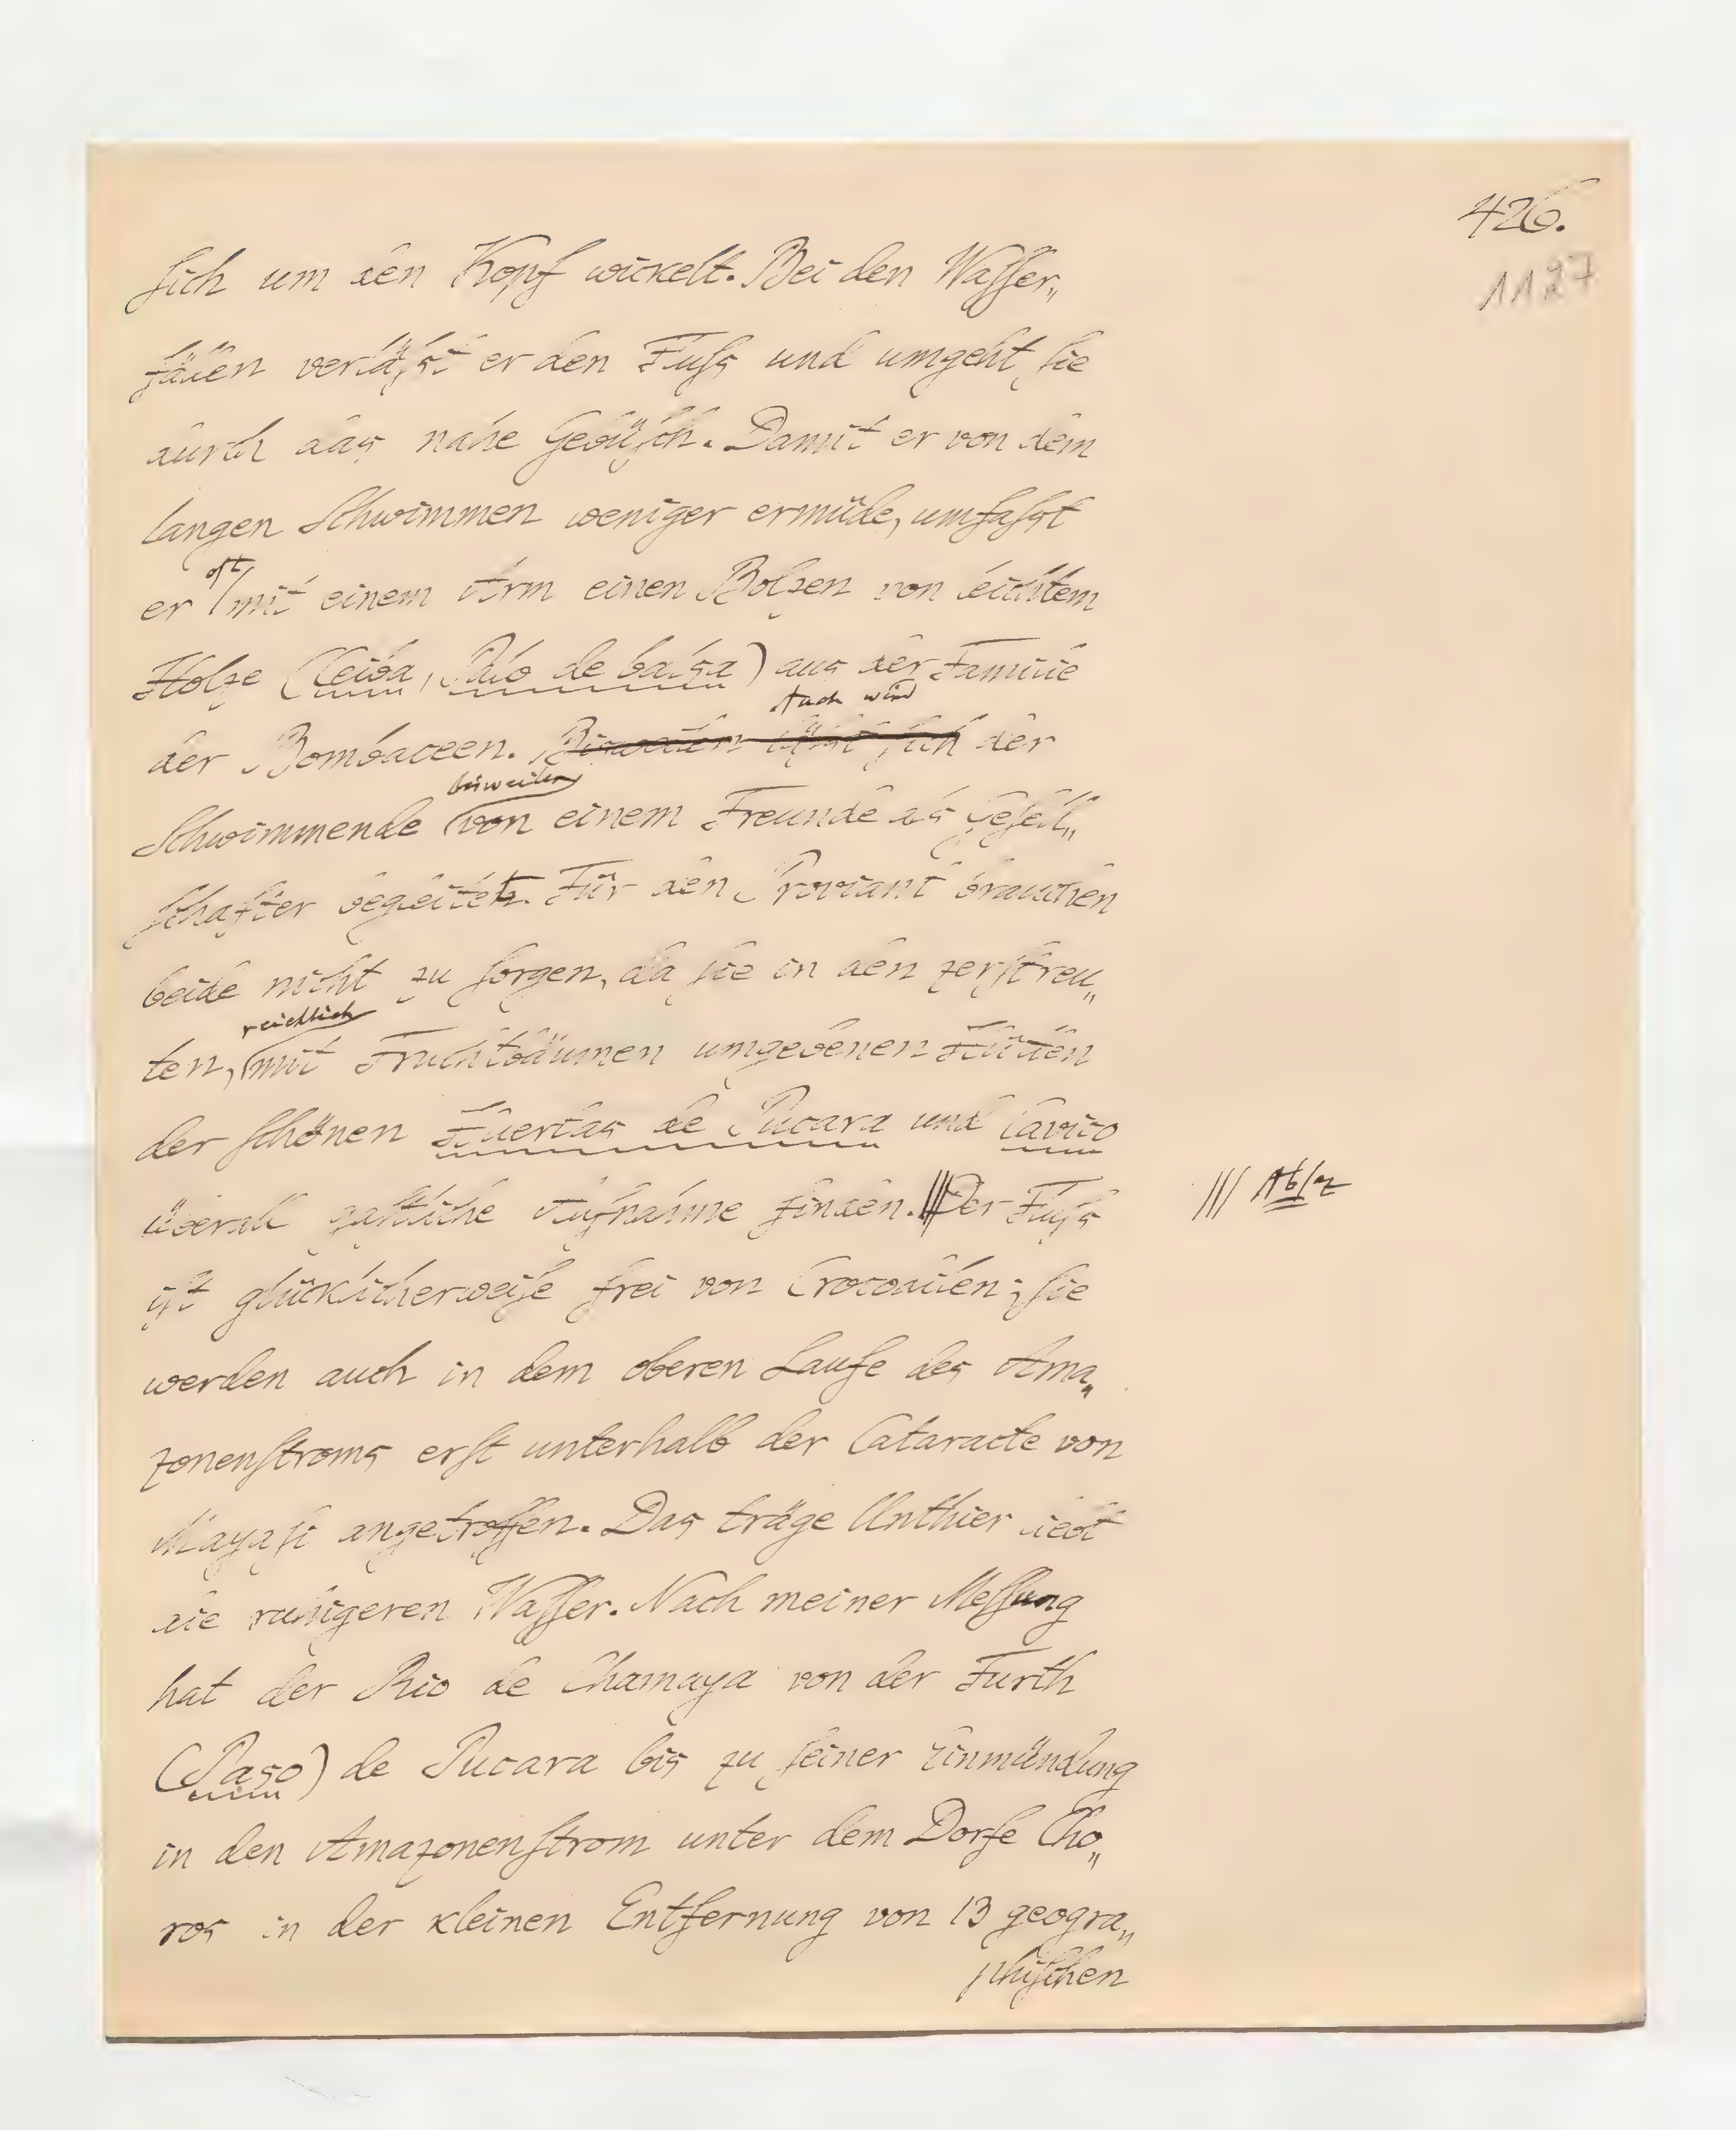 426.
1127
sich um den Kopf wickelt. Bei den Wasser„
fällen verläßt er den Fluß und umgeht sie
durch das nahe Gebüsch. Damit er von dem
langen Schwimmen weniger ermüde, umfaßt
oft
er mit einem Arm einen Bolzen von leichtem
Holze (Ceiba, Palo de balsa) aus der Familie
Auch wird
der Bombaceen. Bisweilen läßt sich der
bisweilen
Schwimmende von einem Freunde als Gesell„
schafter begleitet. Für den Proviant brauchen
beide nicht zu sorgen, da sie in den zerstreu„
reichlich
ten, mit Fruchtbäumen umgebenen Hütten
der schönen Huertas de Pucara und Cavico
überall gastliche Aufnahme finden. Der Fluß
||| Absz
ist glücklicherweise frei von Crocodilen; sie
werden auch in dem oberen Laufe des Ama„
zonenstroms erst unterhalb der Cataracte von
Mayasi angetroffen. Das träge Unthier liebt
die ruhigeren Wasser. Nach meiner Messung
hat der Rio de Chamaya von der Furth
(Paso) de Pucara bis zu seiner Einmündung
in den Amazonenstrom unter dem Dorfe Cho„
ros in der kleinen Entfernung von 13 geogra„
phischen